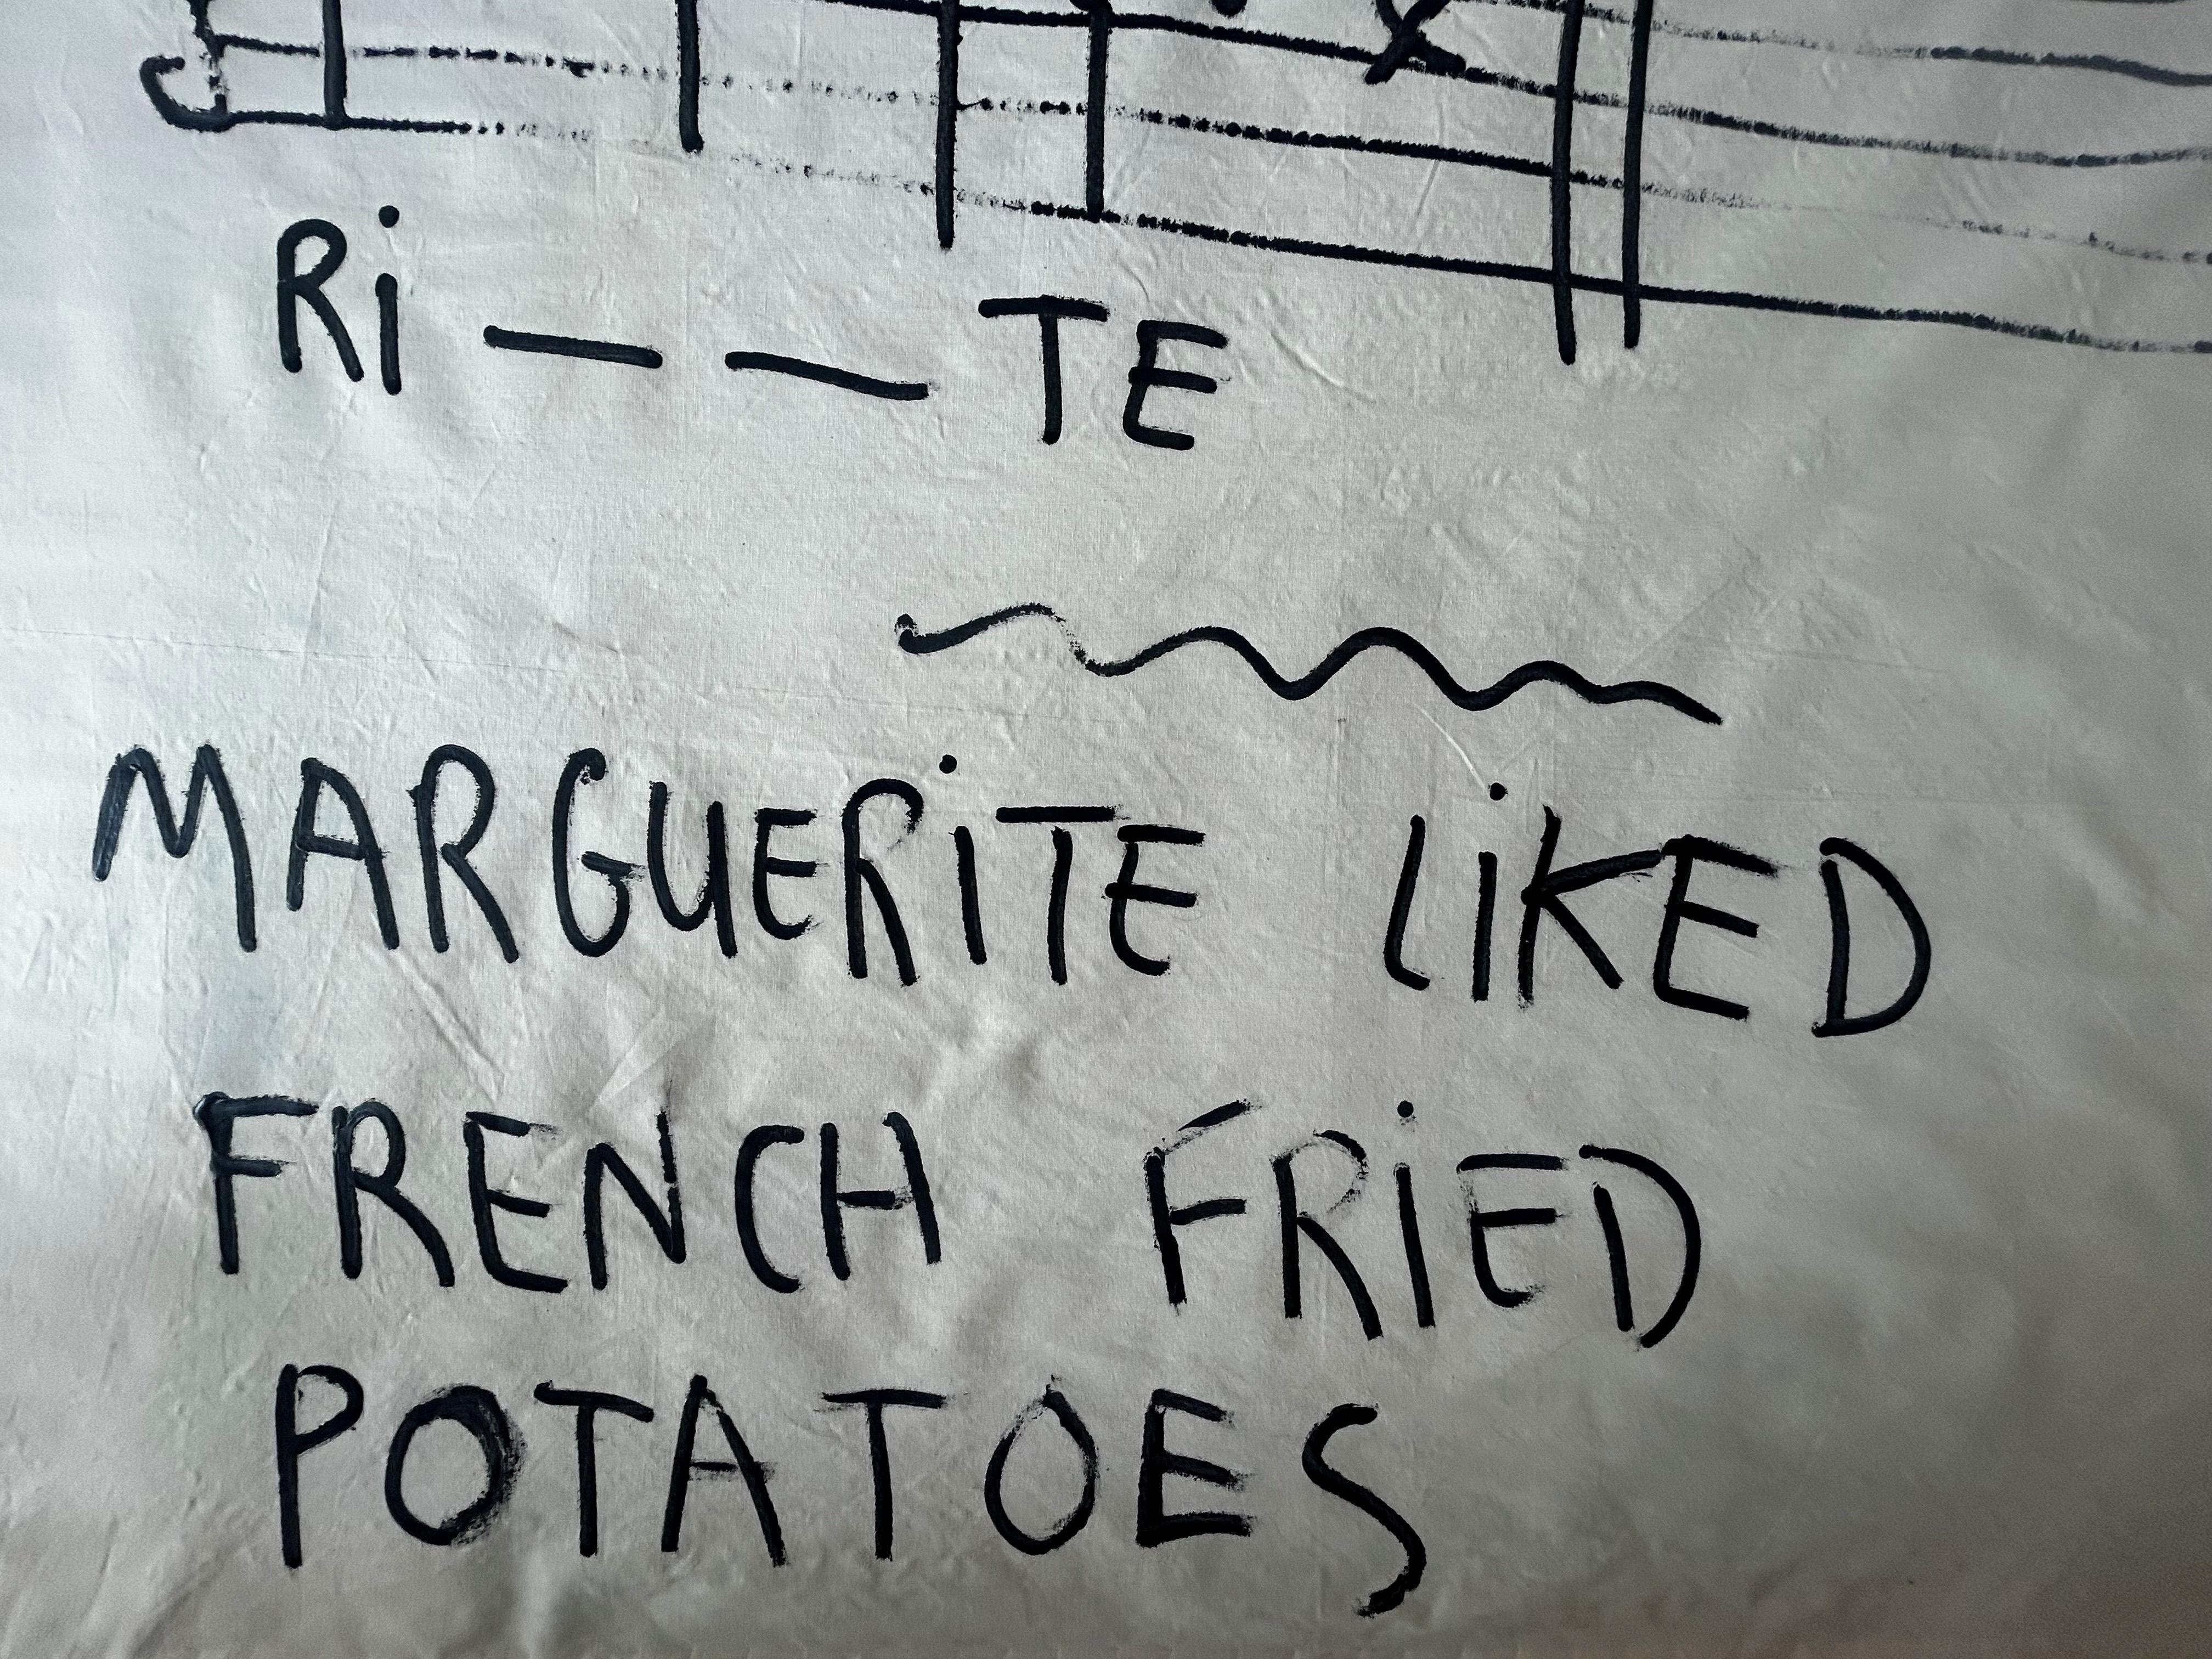 Ri — — TE
MARGUERiTE LiKED
FRENCH FRiED
POTATOES